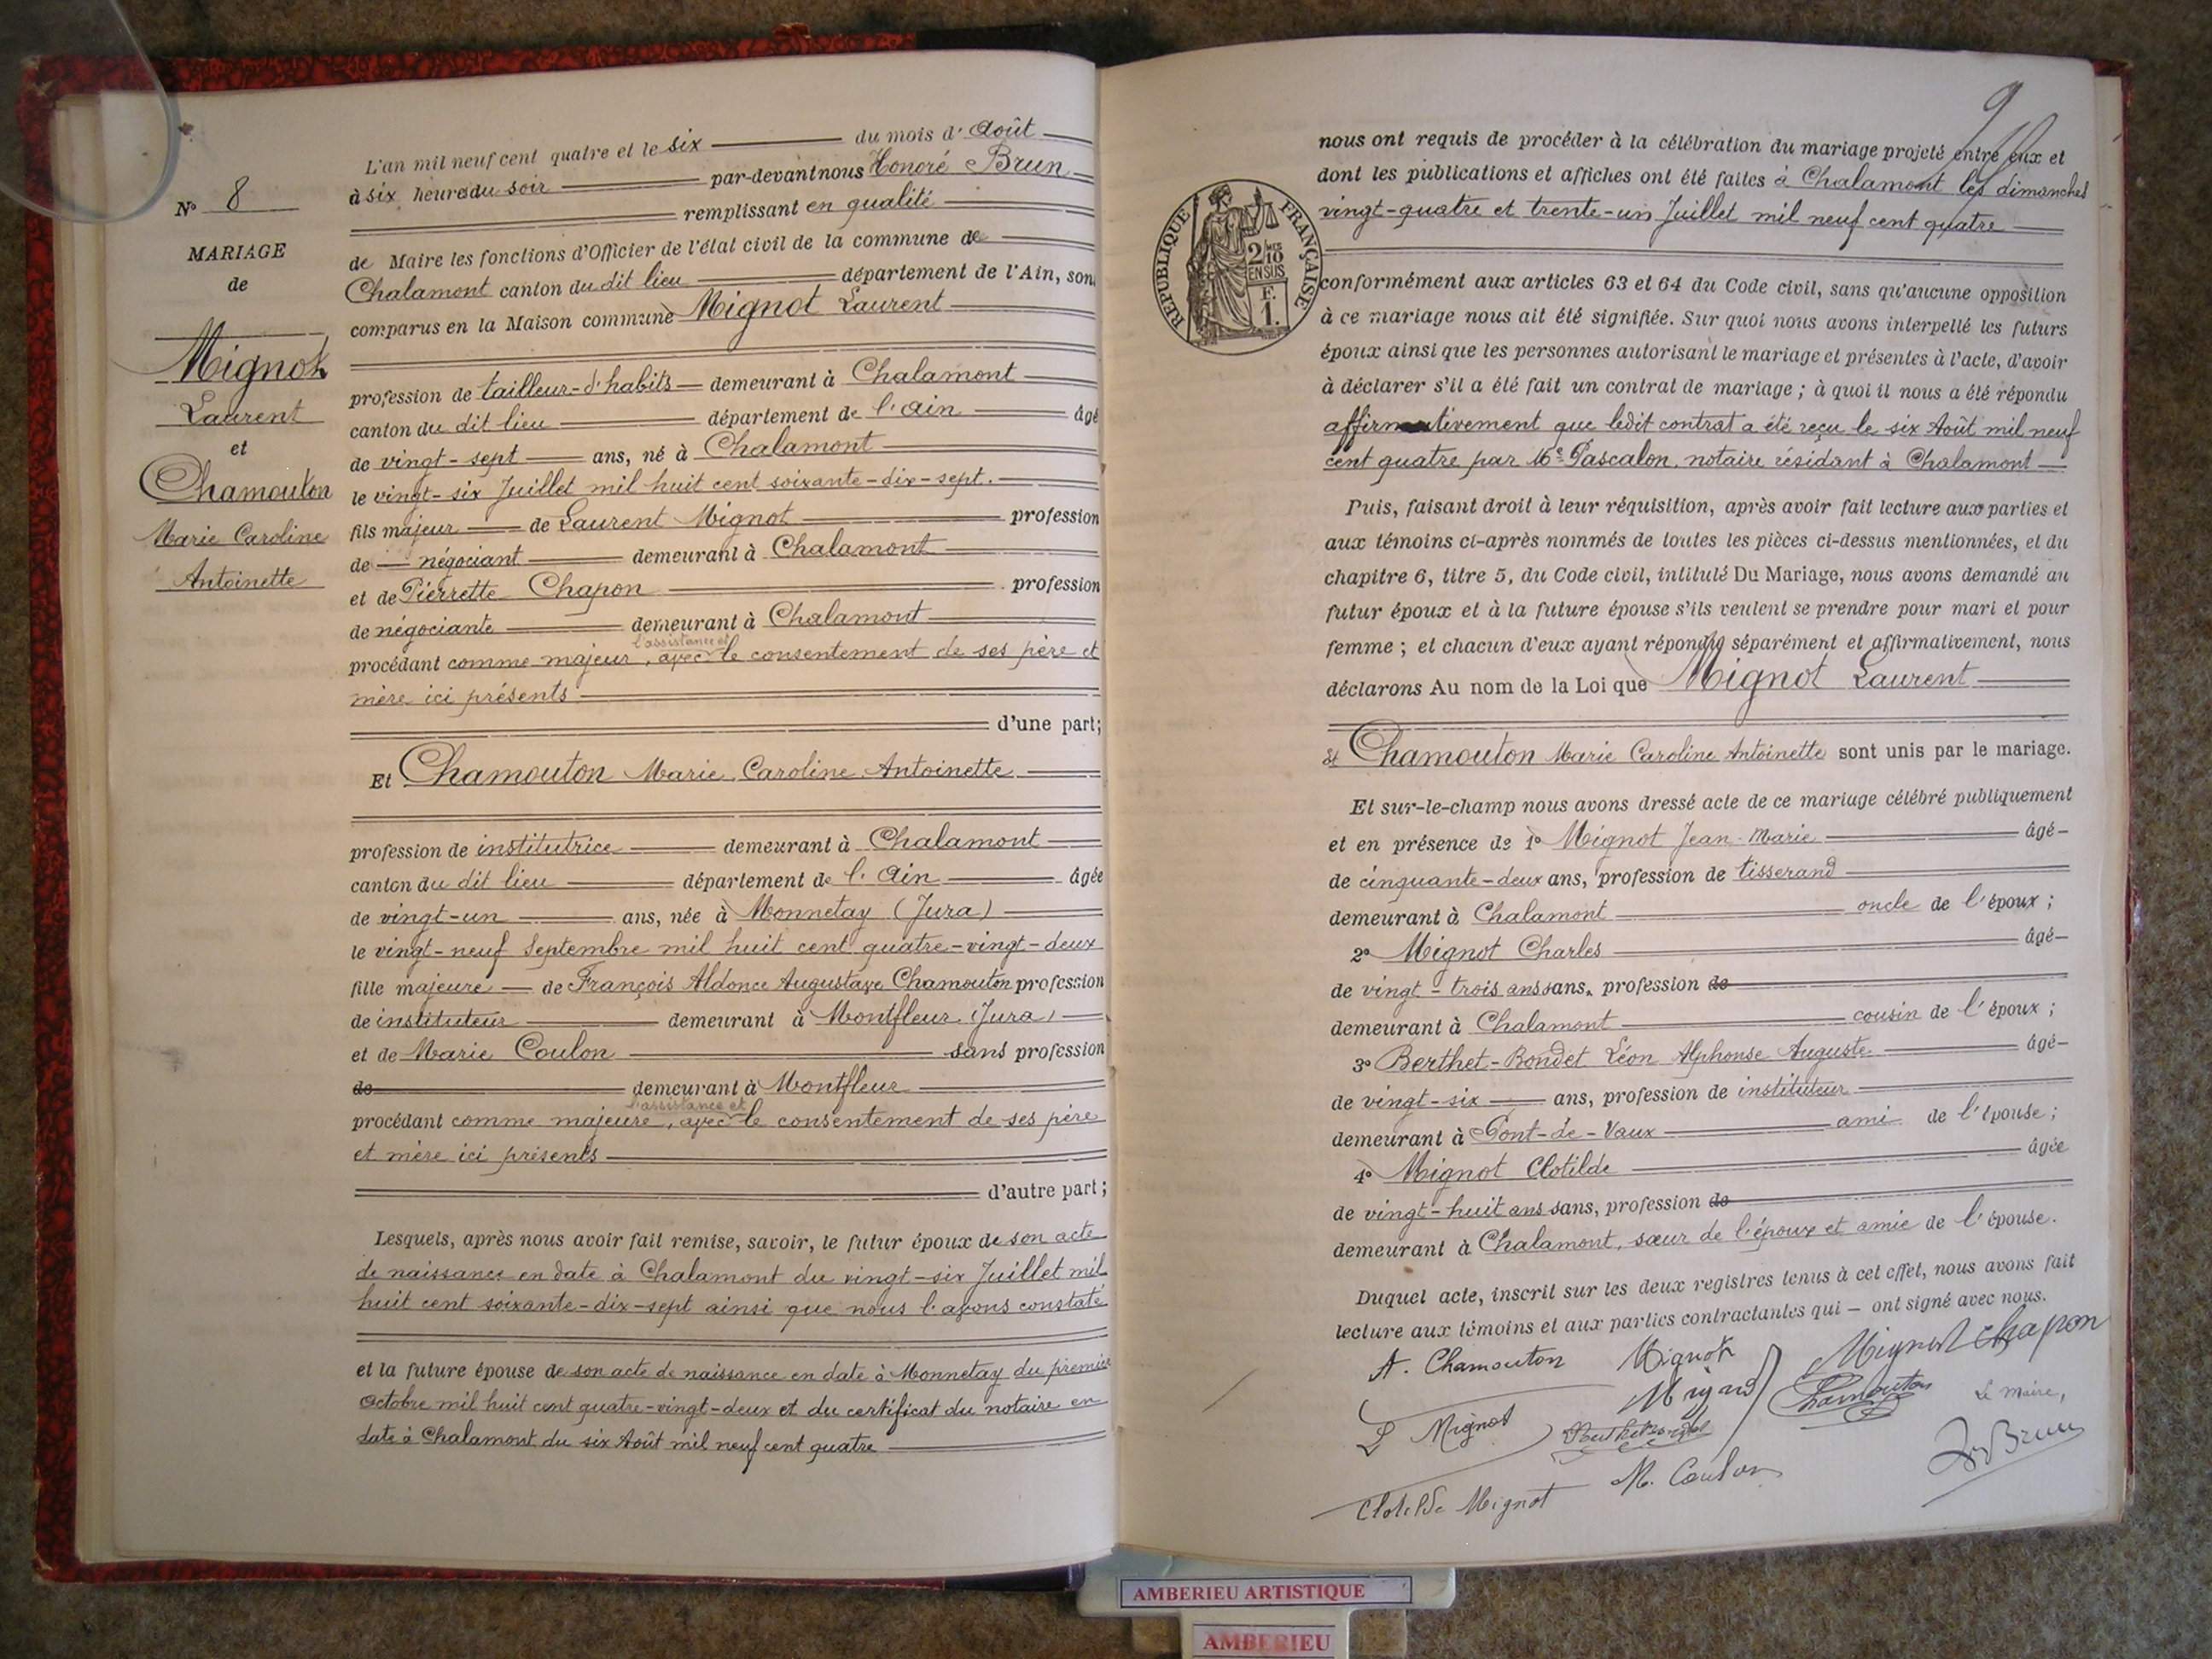 N° 8
MARIAGE
de
Mignot
Laurent
et
Chamouton
Marie Caroline
Antoinette
L'an mil neuf cent quatre et le six du mois d'Août
à six heure du soir par-devant nous Honoré Brun
remplissant en qualité
de Maire les fonctions d'Officier de l'état civil de la commune de
Chalamont canton du dit lieu département de l'Ain, sont
comparus en la Maison commune Mignot Laurent
profession de tailleur-d'habits demeurant à Chalamont
canton du dit lieu département de l'Ain âgé
de vingt-sept ans, né à Chalamont
le vingt-six Juillet mil huit cent soixante-dix-sept.
fils majeur de Laurent Mignot profession
de négociant demeurant à Chalamont
et de Pierrette Chapon profession
de négociante demeurant à Chalamont
l'assistance et
procédant comme majeur, avec le consentement de ses père et
mère ici présents
d'une part;
Et Chamouton Marie Caroline Antoinette
profession de institutrice demeurant à Chalamont
canton du dit lieu département de l'Ain âgée
de vingt-un ans, née à Monnetay (Jura)
le vingt-neuf Septembre mil huit cent quatre-vingt-deux
fille majeure de François Aldonce Chamouton profession
de instituteur demeurant à Montfleur (Jura)
et de Marie Coulon sans profession
de demeurant à Montfleur
l'assistance et
procédant comme majeure, avec le consentement de ses père
et mère ici présents
d'autre part;
Lesquels, après nous avoir fait remise, savoir, le futur époux de son acte
de naissance en date à Chalamont du vingt-six Juillet mil
huit cent soixante-dix-sept ainsi que nous l'avons constaté
et la future épouse de son acte de naissance en date à Monnetay du premier
Octobre mil huit cent quatre-vingt-deux et du certificat du notaire en
date à Chalamont du six Août mil neuf cent quatre
9
nous ont requis de procéder à la célébration du mariage projeté entre eux et
dont les publications et affiches ont été faites à Chalamont les dimanches
vingt-quatre et trente-un Juillet mil neuf cent quatre
REPUBLIQUE FRANÇAISE
2 MES
10
EN SUS
F.
1.
conformément aux articles 63 et 64 du Code civil, sans qu'aucune opposition
à ce mariage nous ait été signifiée. Sur quoi nous avons interpellé les futurs
époux ainsi que les personnes autorisant le mariage et présentes à l'acte, d'avoir
à déclarer s'il a été fait un contrat de mariage; à quoi il nous a été répondu
affirmativement que ledit contrat a été reçu le six Août mil neuf
cent quatre par Me Pascalon, notaire résidant à Chalamont
Puis, faisant droit à leur réquisition, après avoir fait lecture aux parties et
aux témoins ci-après nommés de toutes les pièces ci-dessus mentionnées, et du
chapitre 6, titre 5, du Code civil, intitulé Du Mariage, nous avons demandé au
futur époux et à la future épouse s'ils veulent se prendre pour mari et pour
femme; et chacun d'eux ayant répondu séparément et affirmativement, nous
déclarons Au nom de la Loi que Mignot Laurent
Et Chamouton Marie Caroline Antoinette sont unis par le mariage.
Et sur-le-champ nous avons dressé acte de ce mariage célébré publiquement
et en présence de 1° Mignot Jean-Marie âgé
de cinquante-deux ans, profession de tisserand
demeurant à Chalamont oncle de l'époux;
2° Mignot Charles âgé
de vingt-trois ans sans, profession de
demeurant à Chalamont cousin de l'époux;
3° Berthet-Bondet Léon Alphonse Auguste âgé
de vingt-six ans, profession de instituteur
demeurant à Pont-de-Vaux ami de l'épouse;
4° Mignot Clotilde âgée
de vingt-huit ans sans, profession de
demeurant à Chalamont, sœur de l'époux et amie de l'épouse.
Duquel acte, inscrit sur les deux registres tenus à cet effet, nous avons fait
lecture aux témoins et aux parties contractantes qui ont signé avec nous.
A. Chamouton Mignot Mignot Chapon
L Mignot Mignot Chamouton Le maire,
Berthet Bondet Brun
Clotilde Mignot M. Coulon
AMBERIEU ARTISTIQUE
AMBERIEU